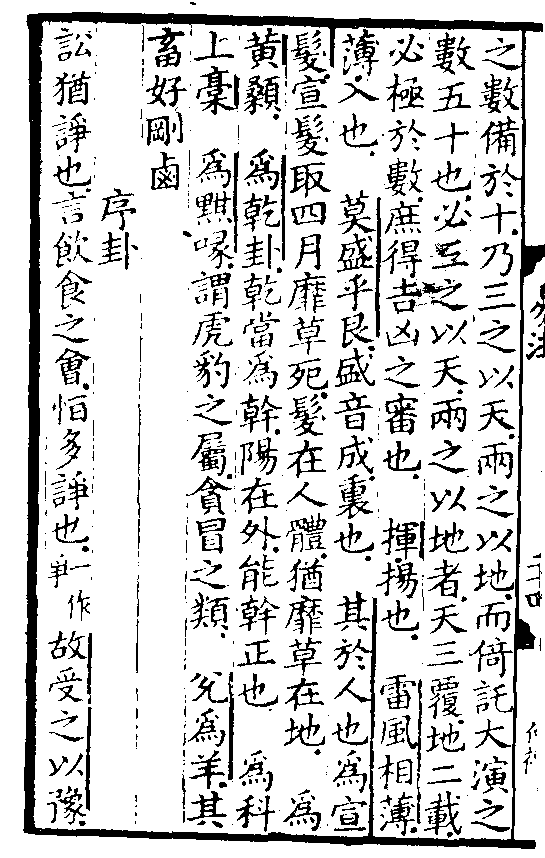 之數備於十乃三之以天兩之以地而倚託大演之
數五十也必三之以天兩之以地者天三覆地二載
必極於數庶得吉凶之審也　揮揚也　雷風相薄
薄入也　莫盛乎艮盛音成裹也　其於人也爲宣
髮宣髮取四月靡草死髮在人體猶靡草在地　爲
黃顙　爲乾卦乾當爲幹陽在外能幹正也　爲科
上槀　爲黔喙謂虎豹之屬貪冒之類　兌爲羊其
畜好剛鹵
序卦
訟猶諍也言飲食之會恒多諍也一作爭故受之以豫